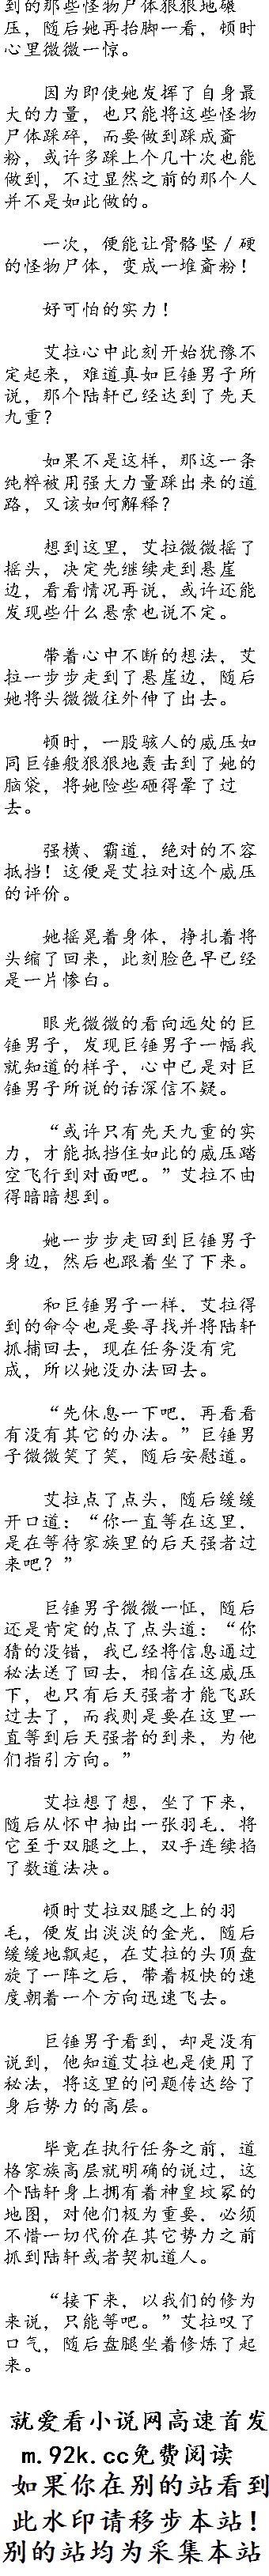 到的那些怪物尸体狠狠地碾
压，随后她再抬脚一看，顿时
心里微微一惊。
因为即使她发挥了自身最
大的力量，也只能将这些怪物
尸体踩碎，而要做到踩成齑
粉，或许多踩上个几十次也能
做到，不过显然之前的那个人
并不是如此做的。
一次，便能让骨骼坚／硬
的怪物尸体，变成一堆齑粉！
好可怕的实力！
艾拉心中此刻开始犹豫不
定起来，难道真如巨锤男子所
说，那个陆轩已经达到了先天
九重？
如果不是这样，那这一条
纯粹被用强大力量踩出来的道
路，又该如何解释？
想到这里，艾拉微微摇了
摇头，决定先继续走到悬崖
边，看看情况再说，或许还能
发现些什么悬索也说不定。
带着心中不断的想法，艾
拉一步步走到了悬崖边，随后
她将头微微往外伸了出去。
顿时，一股骇人的威压如
同巨锤般狠狠地轰击到了她的
脑袋，将她险些砸得晕了过
去。
强横、霸道，绝对的不容
抵挡！这便是艾拉对这个威压
的评价。
她摇晃着身体，挣扎着将
头缩了回来，此刻脸色早已经
是一片惨白。
眼光微微的看向远处的巨
锤男子，发现巨锤男子一幅我
就知道的样子，心中已是对巨
锤男子所说的话深信不疑。
“或许只有先天九重的实
力，才能抵挡住如此的威压踏
空飞行到对面吧。”艾拉不由
得暗暗想到。
她一步步走回到巨锤男子
身边，然后也跟着坐了下来。
和巨锤男子一样，艾拉得
到的命令也是要寻找并将陆轩
抓捕回去，现在任务没有完
成，所以她没办法回去。
“先休息一下吧，再看看
有没有其它的办法。”巨锤男
子微微笑了笑，随后安慰道。
艾拉点了点头，随后缓缓
开口道：“你一直等在这里，
是在等待家族里的后天强者过
来吧？”
巨锤男子微微一怔，随后
还是肯定的点了点头道：“你
猜的没错，我已经将信息通过
秘法送了回去，相信在这威压
下，也只有后天强者才能飞跃
过去了，而我则是要在这里一
直等到后天强者的到来，为他
们指引方向。”
艾拉想了想，坐了下来，
随后从怀中抽出一张羽毛，将
它至于双腿之上，双手连续掐
了数道法决。
顿时艾拉双腿之上的羽
毛，便发出淡淡的金光，随后
缓缓地飘起，在艾拉的头顶盘
旋了一阵之后，带着极快的速
度朝着一个方向迅速飞去。
巨锤男子看到，却是没有
说到，他知道艾拉也是使用了
秘法，将这里的问题传达给了
身后势力的高层。
毕竟在执行任务之前，道
格家族高层就明确的说过，这
个陆轩身上拥有着神皇坟冢的
地图，对他们极为重要，必须
不惜一切代价在其它势力之前
抓到陆轩或者契机道人。
“接下来，以我们的修为
来说，只能等吧。”艾拉叹了
口气，随后盘腿坐着修炼了起
来。
就爱看小说网高速首发
m.92k.cc免费阅读
如果你在别的站看到
此水印请移步本站！
别的站均为采集本站